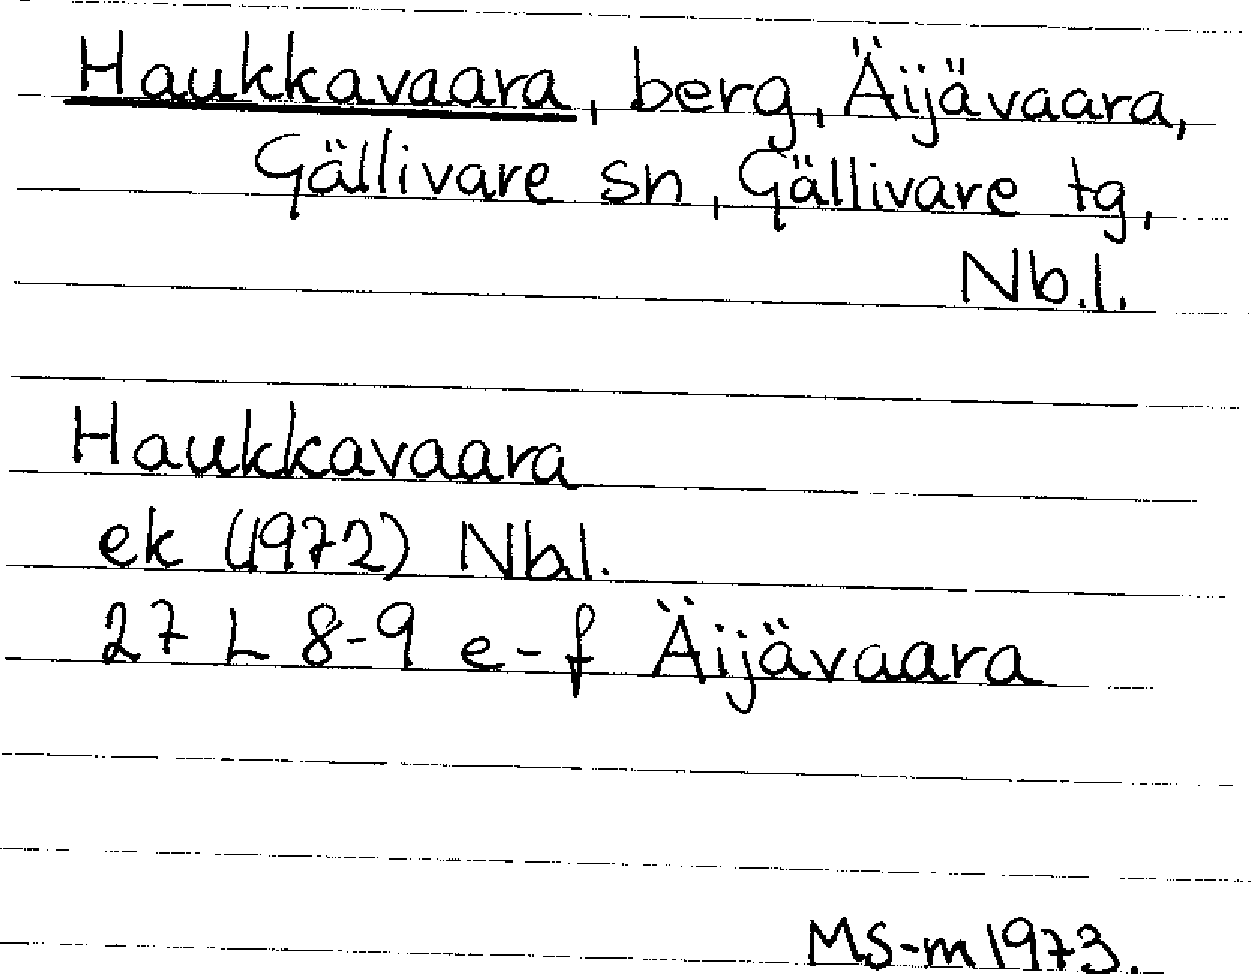 Haukkavaara, berg, Äijävaara,
Gällivare sn, Gällivare tg,
Nb.l.
Haukkavaara
ek (1972) Nb.l.
27 L 8-9 e-f Äijävaara
MS-m 1973.